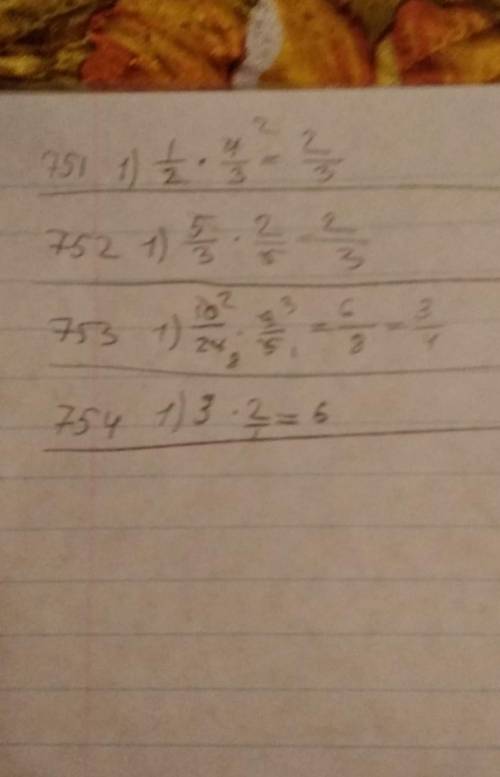 751 1) 1/2 · 4/3 ² = 2/3
752 1) 5/3 · 2/5 = 2/3
753 1) 10²/24 ₈ · 9³/5 ₁ = 6/8 = 3/4
754 1) 3 · 2/1 = 6